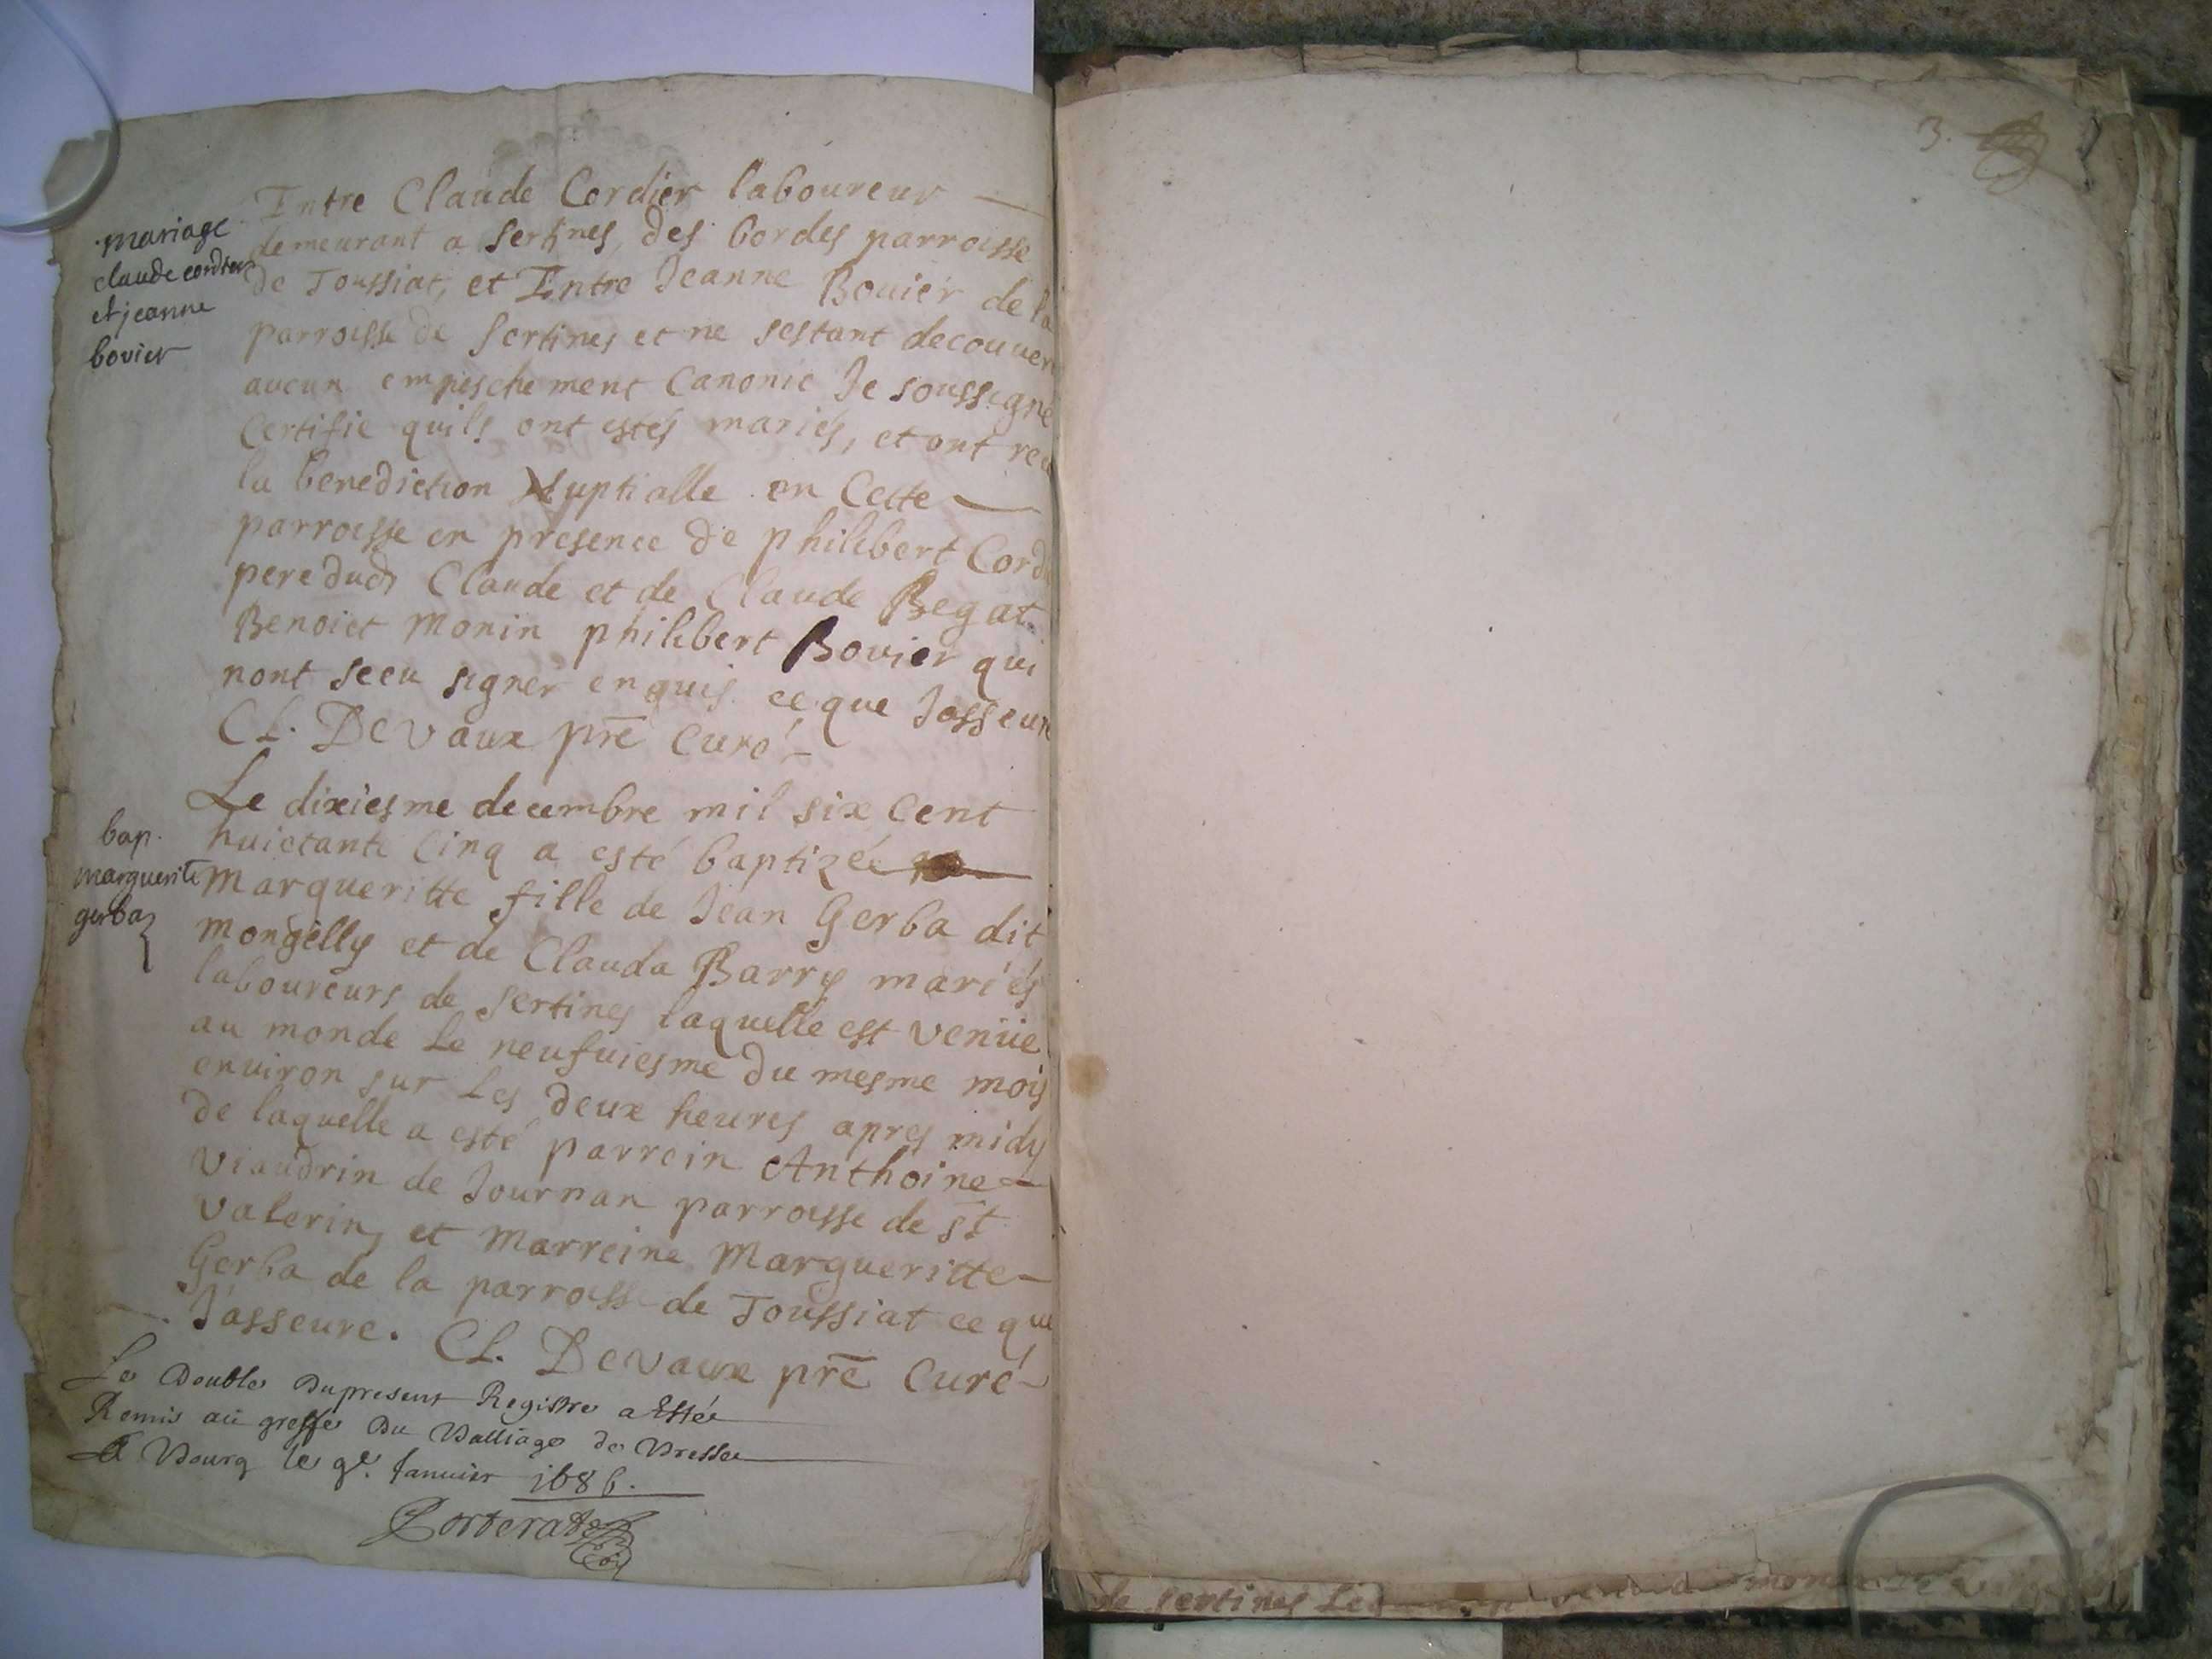 mariage
claude cordier
et jeanne
bovier
Intre Claude Cordier laboureur
demeurant a Sertines, des bordes parroisse
de Toussiat, et Intre Jeanne Bouier de la
parroisse de Sertines et ne sestant decouuer
aucun empeschement Canonic Je soussigné
Certifie quils ont estés mariés, et ont rec
la benediction Nuptialle en Cette
parroisse en presence de philibert Cord
pere dud Claude et de Claude Begat
Benoict Monin philibert Bovier qui
nont sceu signer enquis ce que Jasseure
CL. DeVaux pre Curé
bap.
marguerite
gerba
Le dixiesme decembre mil six Cent
huictante Cinq a esté baptizée
Margueritte fille de Jean Gerba dit
Mongelly et de Clauda Barry mariés
laboureurs de Sertines laquelle est venüe
au monde Le neufuiesme du mesme mois
enuiron sur Les deux heures apres midy
de laquelle a esté parrein Anthoine
Viaudrin de Journan parroisse de st
Valerin, et Marreine Margueritte
Gerba de la parroisse de Toussiat ce que
Jasseure. CL. DeVaux pre Curé
Le Double Dupresent Registre a Esté
Remis au greffe Du Balliage de Bresse
A Bourg le 9e. Januier 1686.
3.
de sertines Le